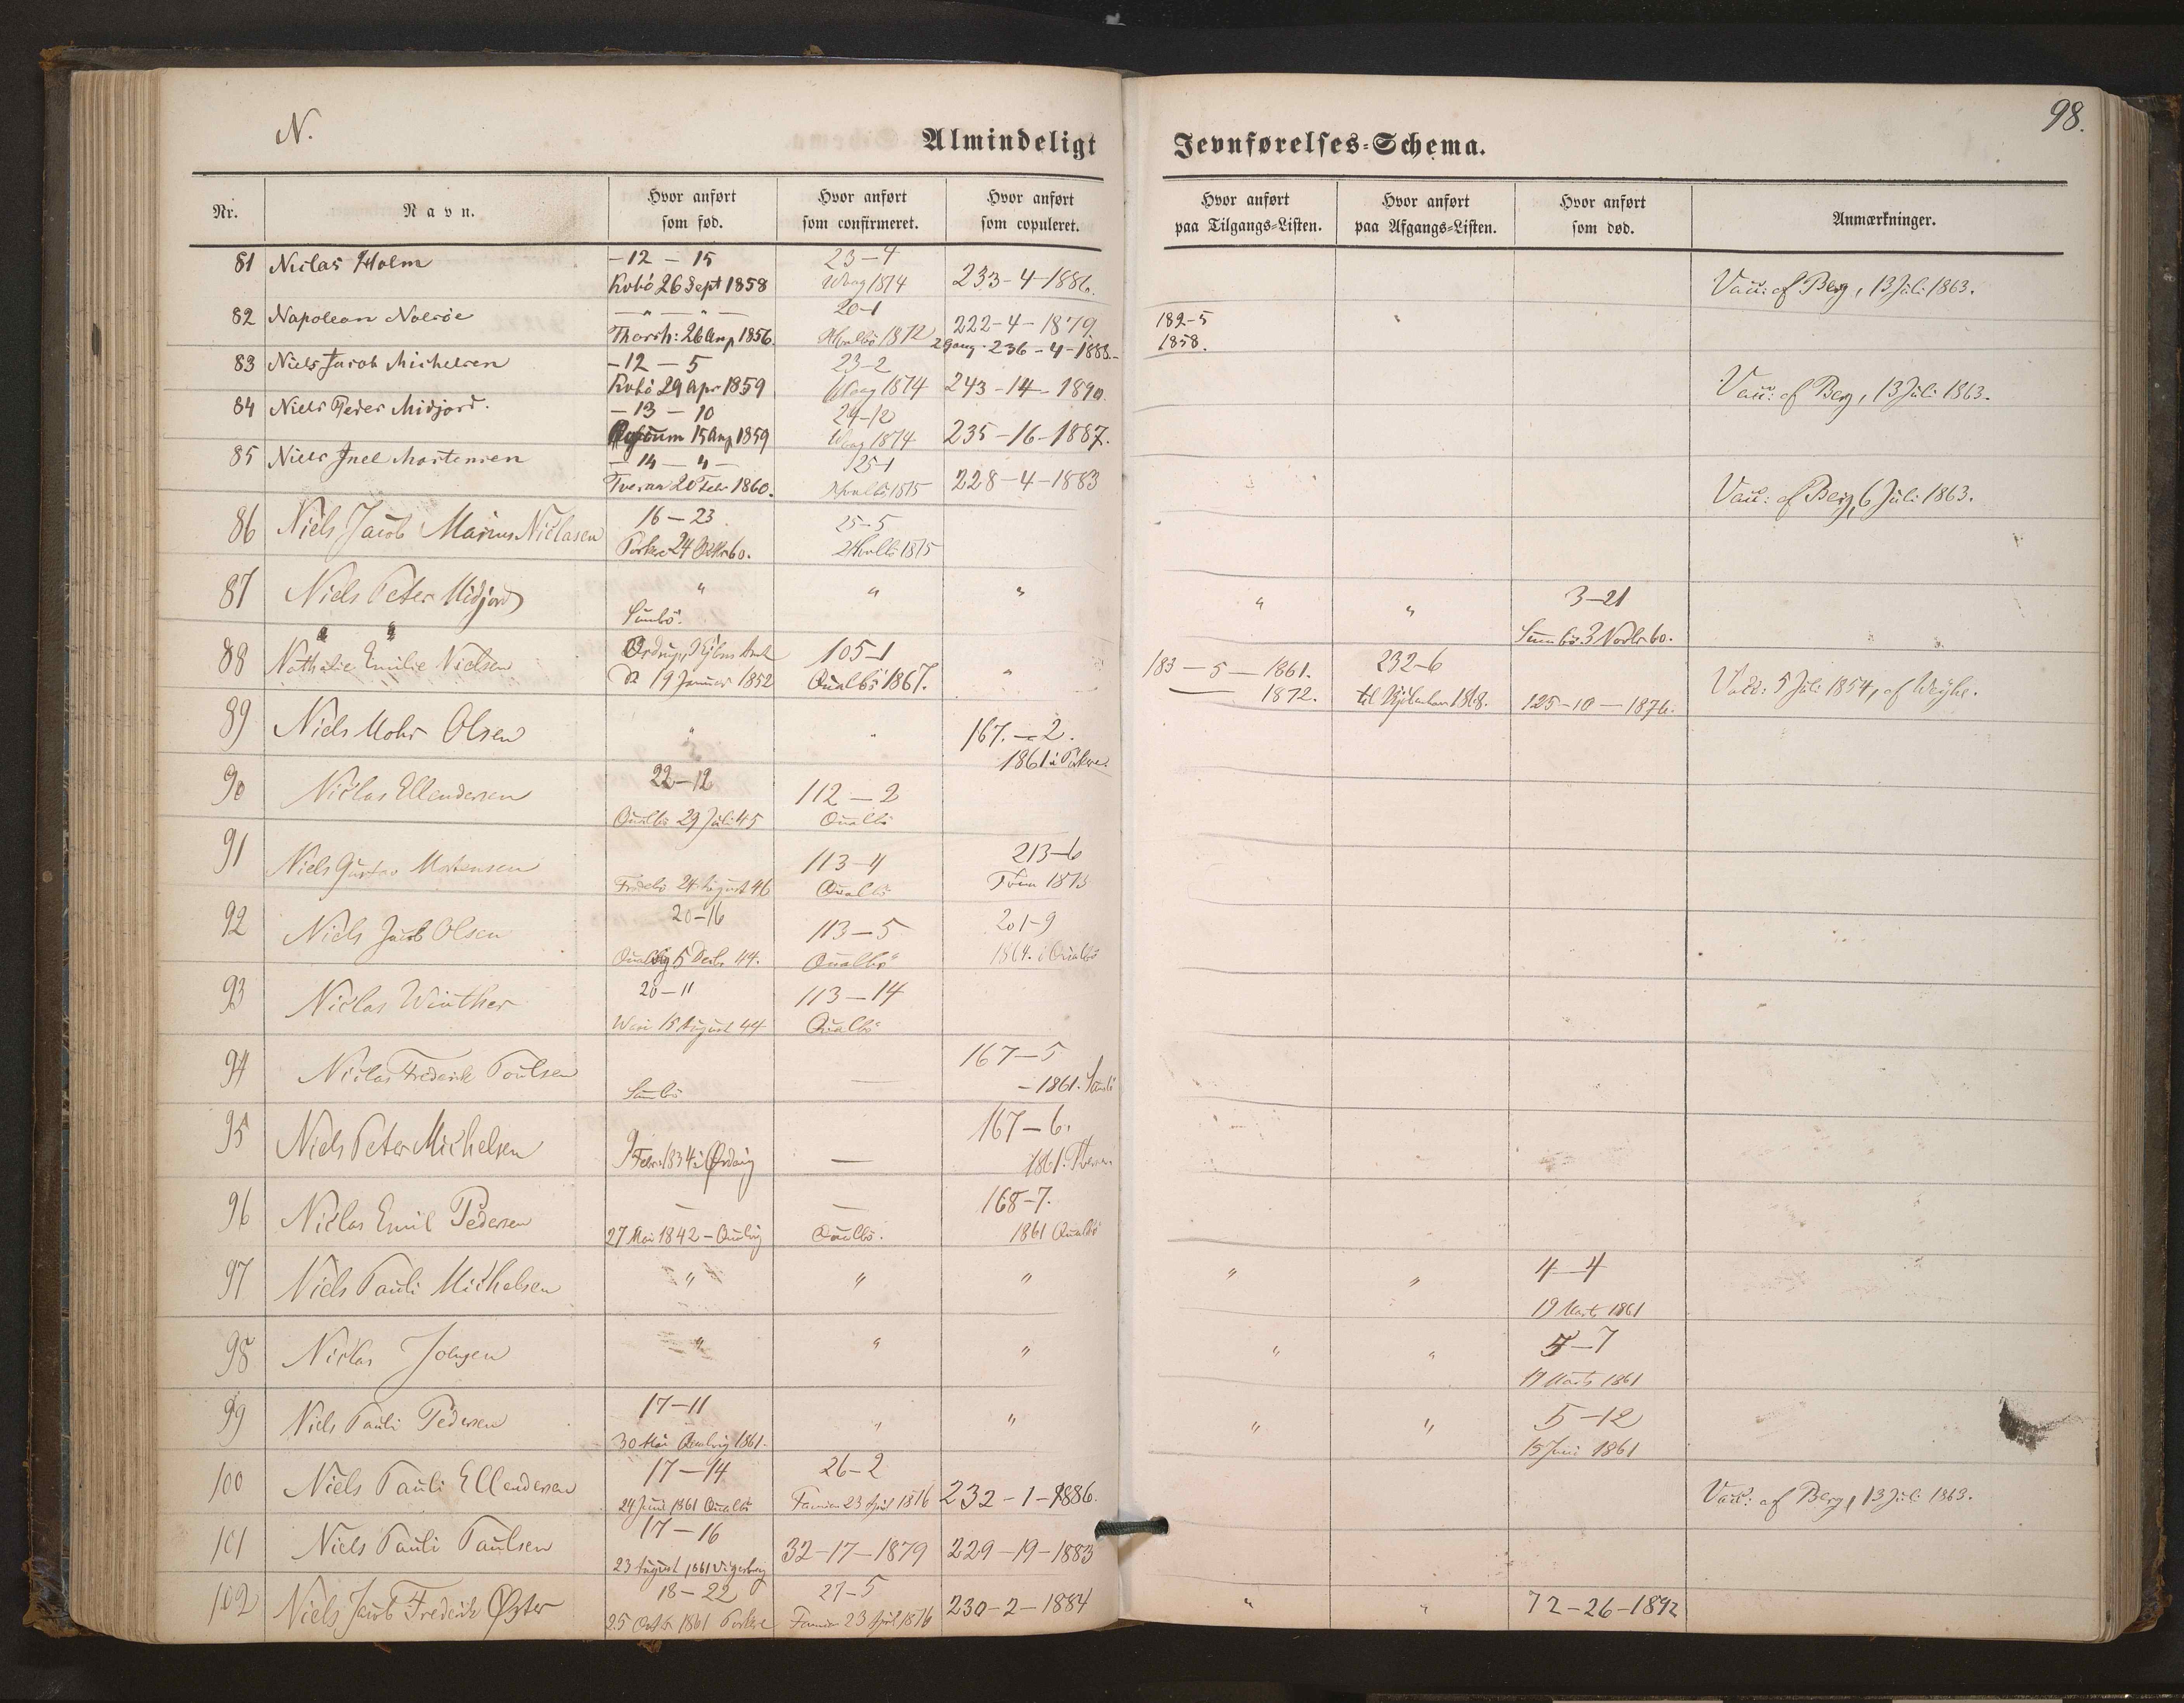 N.
98.
Almindeligt Jevnførelses-Schema.
Nr. Navn. Hvor anført som fød. Hvor anført som confirmeret. Hvor anført som copuleret. Hvor anført paa Tilgangs-Listen. Hvor anført paa Afgangs-Listen. Hvor anført som død. Anmærkninger.
81 Niclas Holm — 12 — 15 23—4
26 Sept 1858 Waag 1874 233-4-1886. Vacc: af Berg, 13 Juli 1863.
82 Napoleon Nolsøe — „ — „ — 20-1 182-5
Thorsh: 26 Aug 1856. 1872 222-4-1879. 1858.
2 gang. 236-4-1888.
83 Niels Jacob Michelsen — 12 — 5 23-2
29 Apr 1859 Waag 1874 243-14-1890 Vacc: af Berg, 13 Juli 1863.
84 Niels Peder Midjord. — 13 — 10 24-12
15 Aug 1859 Waag 1874 235-16-1887.
85 Niels Juel Mortensen — 14 — „ — 25-1
20 Febr 1860. 1875 228-4-1883 Vacc: af Berg, 6 Juli 1863.
86 Niels Jacob Marius Niclasen 16 — 23 25-5
Porkere 24 60. 1875
87 Niels Peter Midjord „ „ „ „ „ 3-21
Sumbø. Sumbø 3 Novbr 60.
88 Nathalie Emilie Nielsen Ordrup, Kjøbnh Amt 105-1 „ 183 — 5 — 1861. 232-6
d 19 Januar 1852 Qualbø 1867. — 1872. til 125-10-1876. Vacc: 5 Juli 1854, af Weyhe.
89 Niels Mohr Olsen „ „ 167. — 2.
1861 i Porkere.
90 Niclas Ellendersen 22-12 112 — 2
Qualbø 29 Juli 45 Qualbø
91 Niels Gustav Mortensen 113-4 213-6
Frodebø 24 August 46 Qualbø 1873
92 Niels Jacob Olsen 20-16 113 — 5 201-9
5 Decbr 44. Qualbø 1864. i Qualbø
93 Niclas Winther 20 — 11 113 — 14
15 August 44 Qualbø
94 Niclas Frederik Poulsen — 167-5
Sumbø — 1861. Sumbø
95 Niels Peter Michelsen — 167-6.
9 Febr 1834 i Ørdvig 1861.
96 Niclas Emil Pedersen — — 168-7.
27 Mai 1842 — Qualvig Qualbø. 1861 Qualbø
97 Niels Pauli Michelsen „ „ „ „ „ 4-4
19 Marts 1861
98 Niclas Joensen „ „ „ „ „ -7
17 Marts 1861
99 Niels Pauli Pedersen 17-11 „ „ „ „ 5-12
30 Mai Qualvig 1861. 15 Juni 1861
100 Niels Pauli Ellendersen 17-14 26-2
24 Juni 1861 Qualbø Famien 23 April 1876 232-1-1886. Vacc: af Berg, 13 Juli 1863.
101 Niels Pauli Poulsen 17 — 16 32-17-1879 229-19-1883
23 August 1861
102 Niels Jacob Frederik Øster 18 — 22 27-5 230-2-1884 „ „ 72-26-1892
25 Octbr 1861 Porkere Famien 23 April 1876